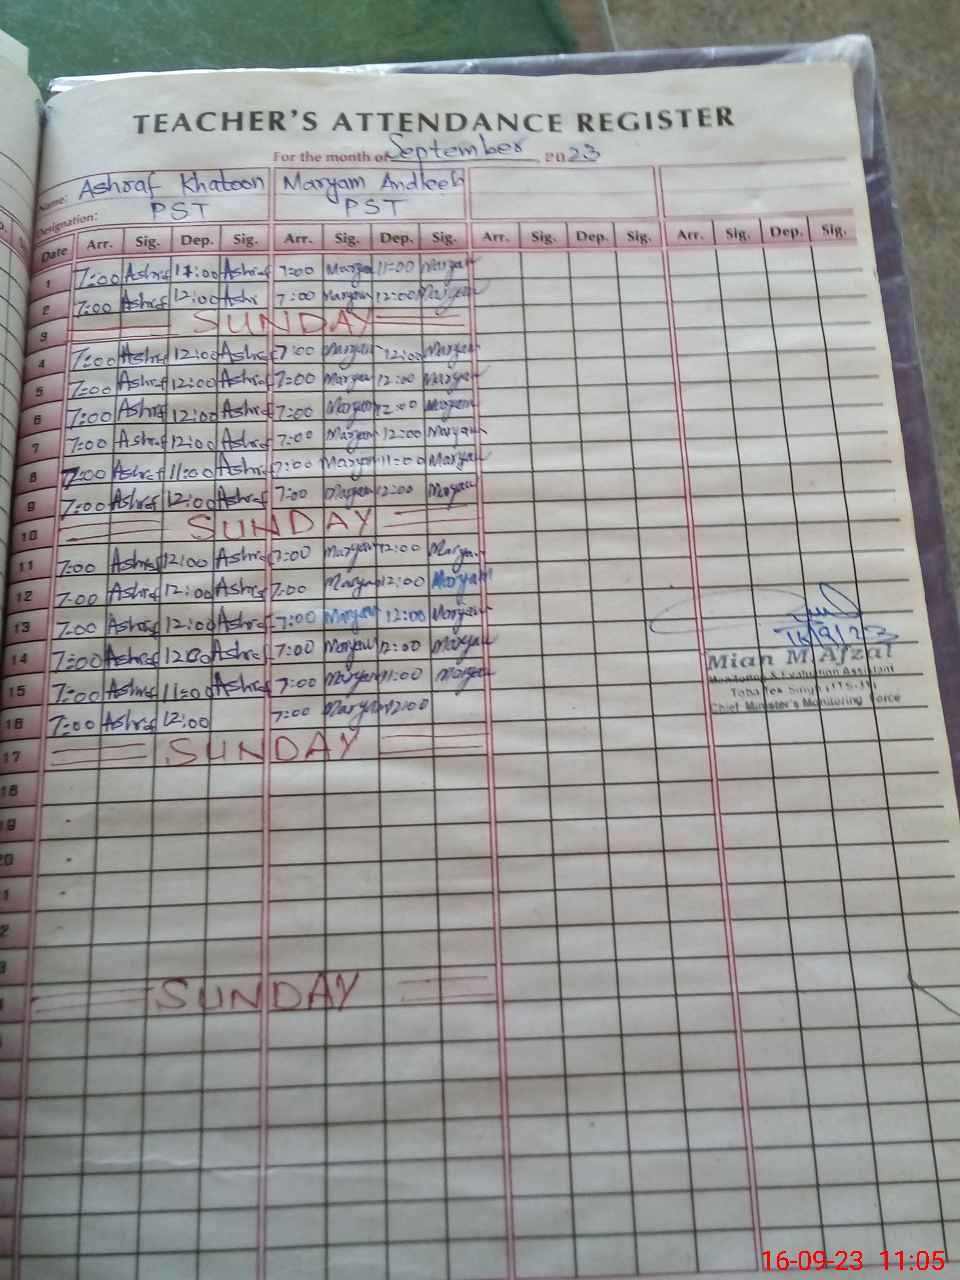 TEACHER'S ATTENDANCE REGISTER
For the month of September 2023
Name: Ashraf Khatoon Maryam Andleeb
Designation: PST PST
Date Arr. Sig. Dep. Sig. Arr. Sig. Dep. Sig. Arr. Sig. Dep. Sig. Arr. Sig. Dep. Sig.
1 7:00 Ashraf 11:00 Ashraf 7:00 Maryam 11:00 Maryam
2 7:00 Ashraf 12:00 Ashr 7:00 Maryam 12:00 Maryam
3 SUNDAY
4 7:00 Ashraf 12:00 Ashraf 7:00 Maryam 12:00 Maryam
5 7:00 Ashraf 12:00 Ashraf 7:00 Maryam 12:00 Maryam
6 7:00 Ashraf 12:00 Ashraf 7:00 Maryam 12:00 Maryam
7 7:00 Ashraf 12:00 Ashraf 7:00 Maryam 12:00 Maryam
8 7:00 Ashraf 11:00 Ashraf 7:00 Maryam 11:00 Maryam
9 7:00 Ashraf 12:00 Ashraf 7:00 Maryam 12:00 Maryam
10 SUNDAY
11 7:00 Ashraf 12:00 Ashraf 7:00 Maryam 12:00 Maryam
12 7:00 Ashraf 12:00 Ashraf 7:00 Maryam 12:00 Maryam
13 7:00 Ashraf 12:00 Ashraf 7:00 Maryam 12:00 Maryam
14 7:00 Ashraf 12:00 Ashraf 7:00 Maryam 12:00 Maryam
15 7:00 Ashraf 11:00 Ashraf 7:00 Maryam 11:00 Maryam
16 7:00 Ashraf 12:00 7:00 Maryam 12:00
17 SUNDAY
18
19
20
1
2
3
SUNDAY
16/9/23
Mian M. Afzal
Monitoring & Evaluation Assistant
Toba Tek Singh
Chief Minister's Monitoring Force
16-09-23 11:05